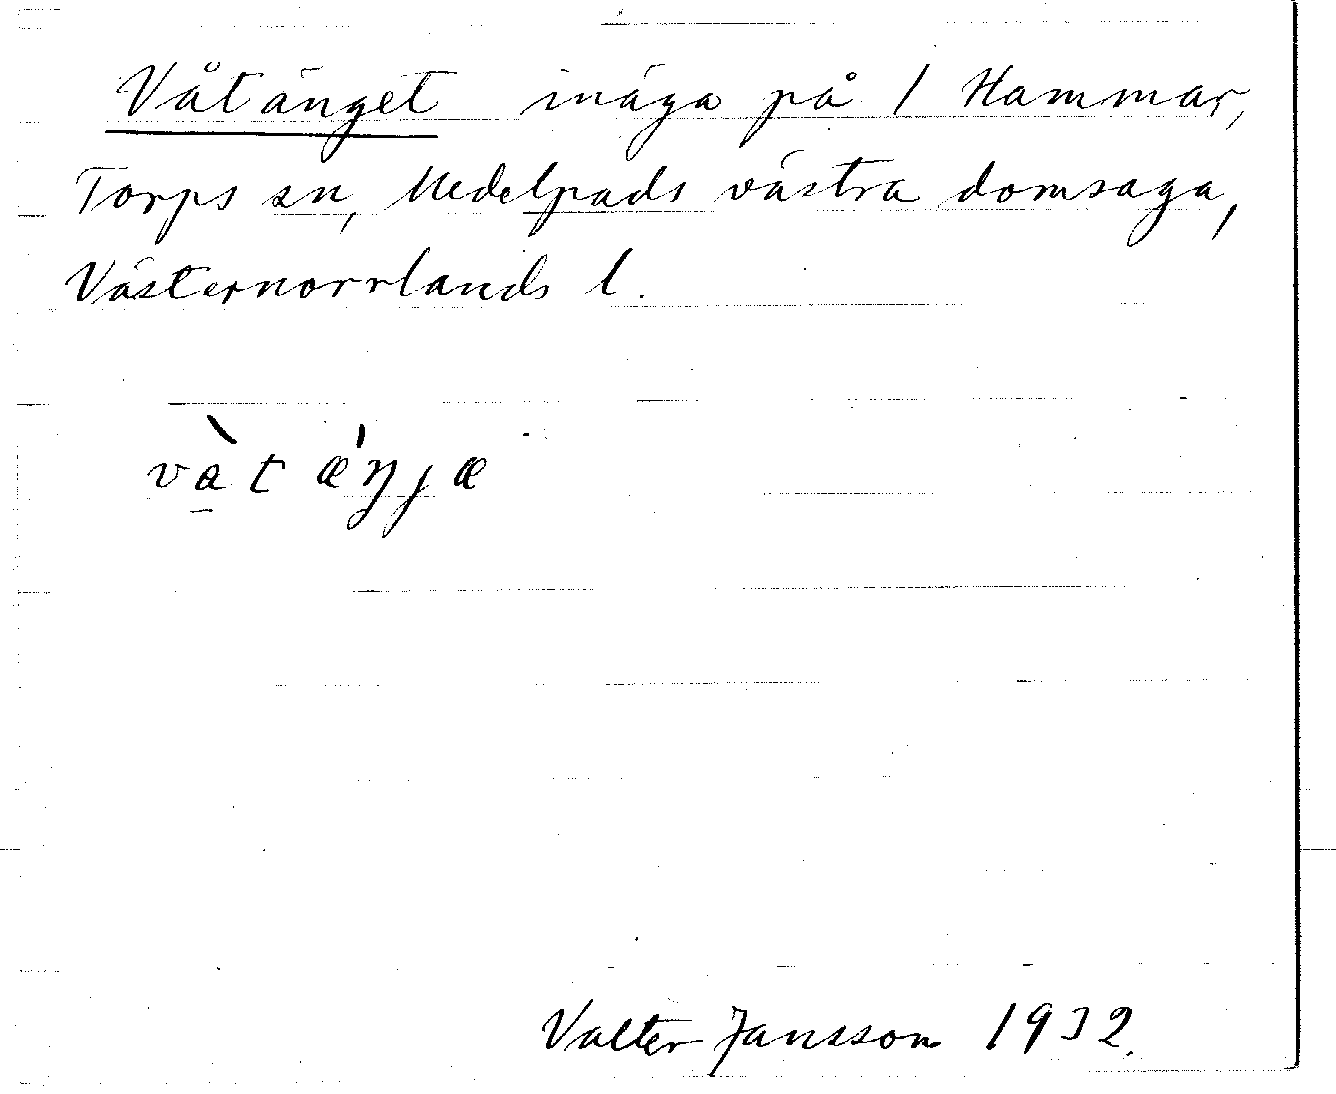 Våtänget inäga på 1 Hammar,
Torps sn, Medelpads västra domsaga,
Västernorrlands l.
và̱t æ̍ŋjæ
Valter Jansson 1932.